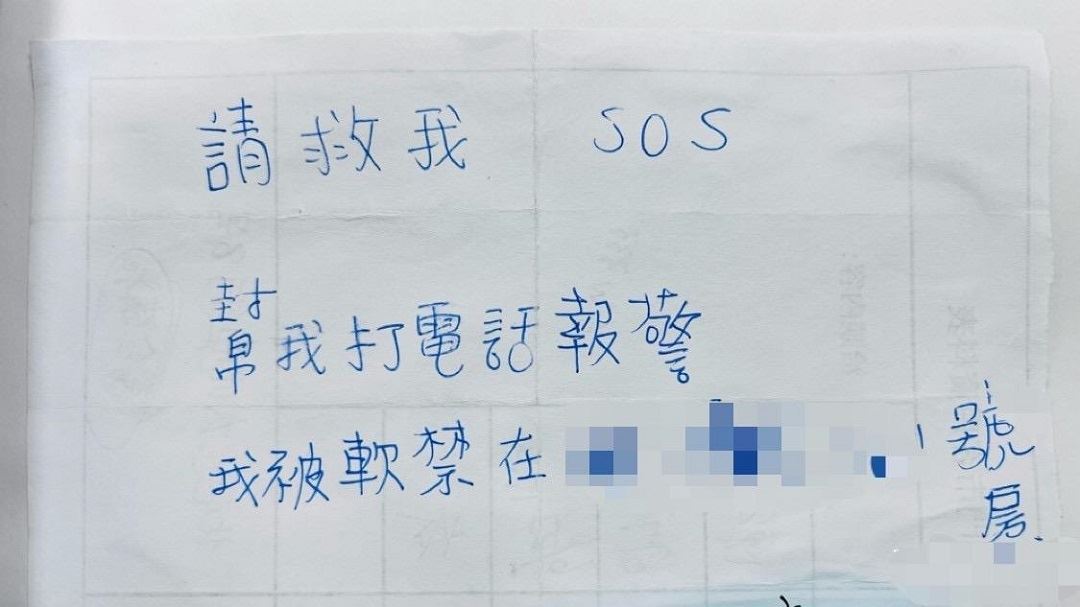 請救我 SOS
幫我打電話報警
我被軟禁在
號房